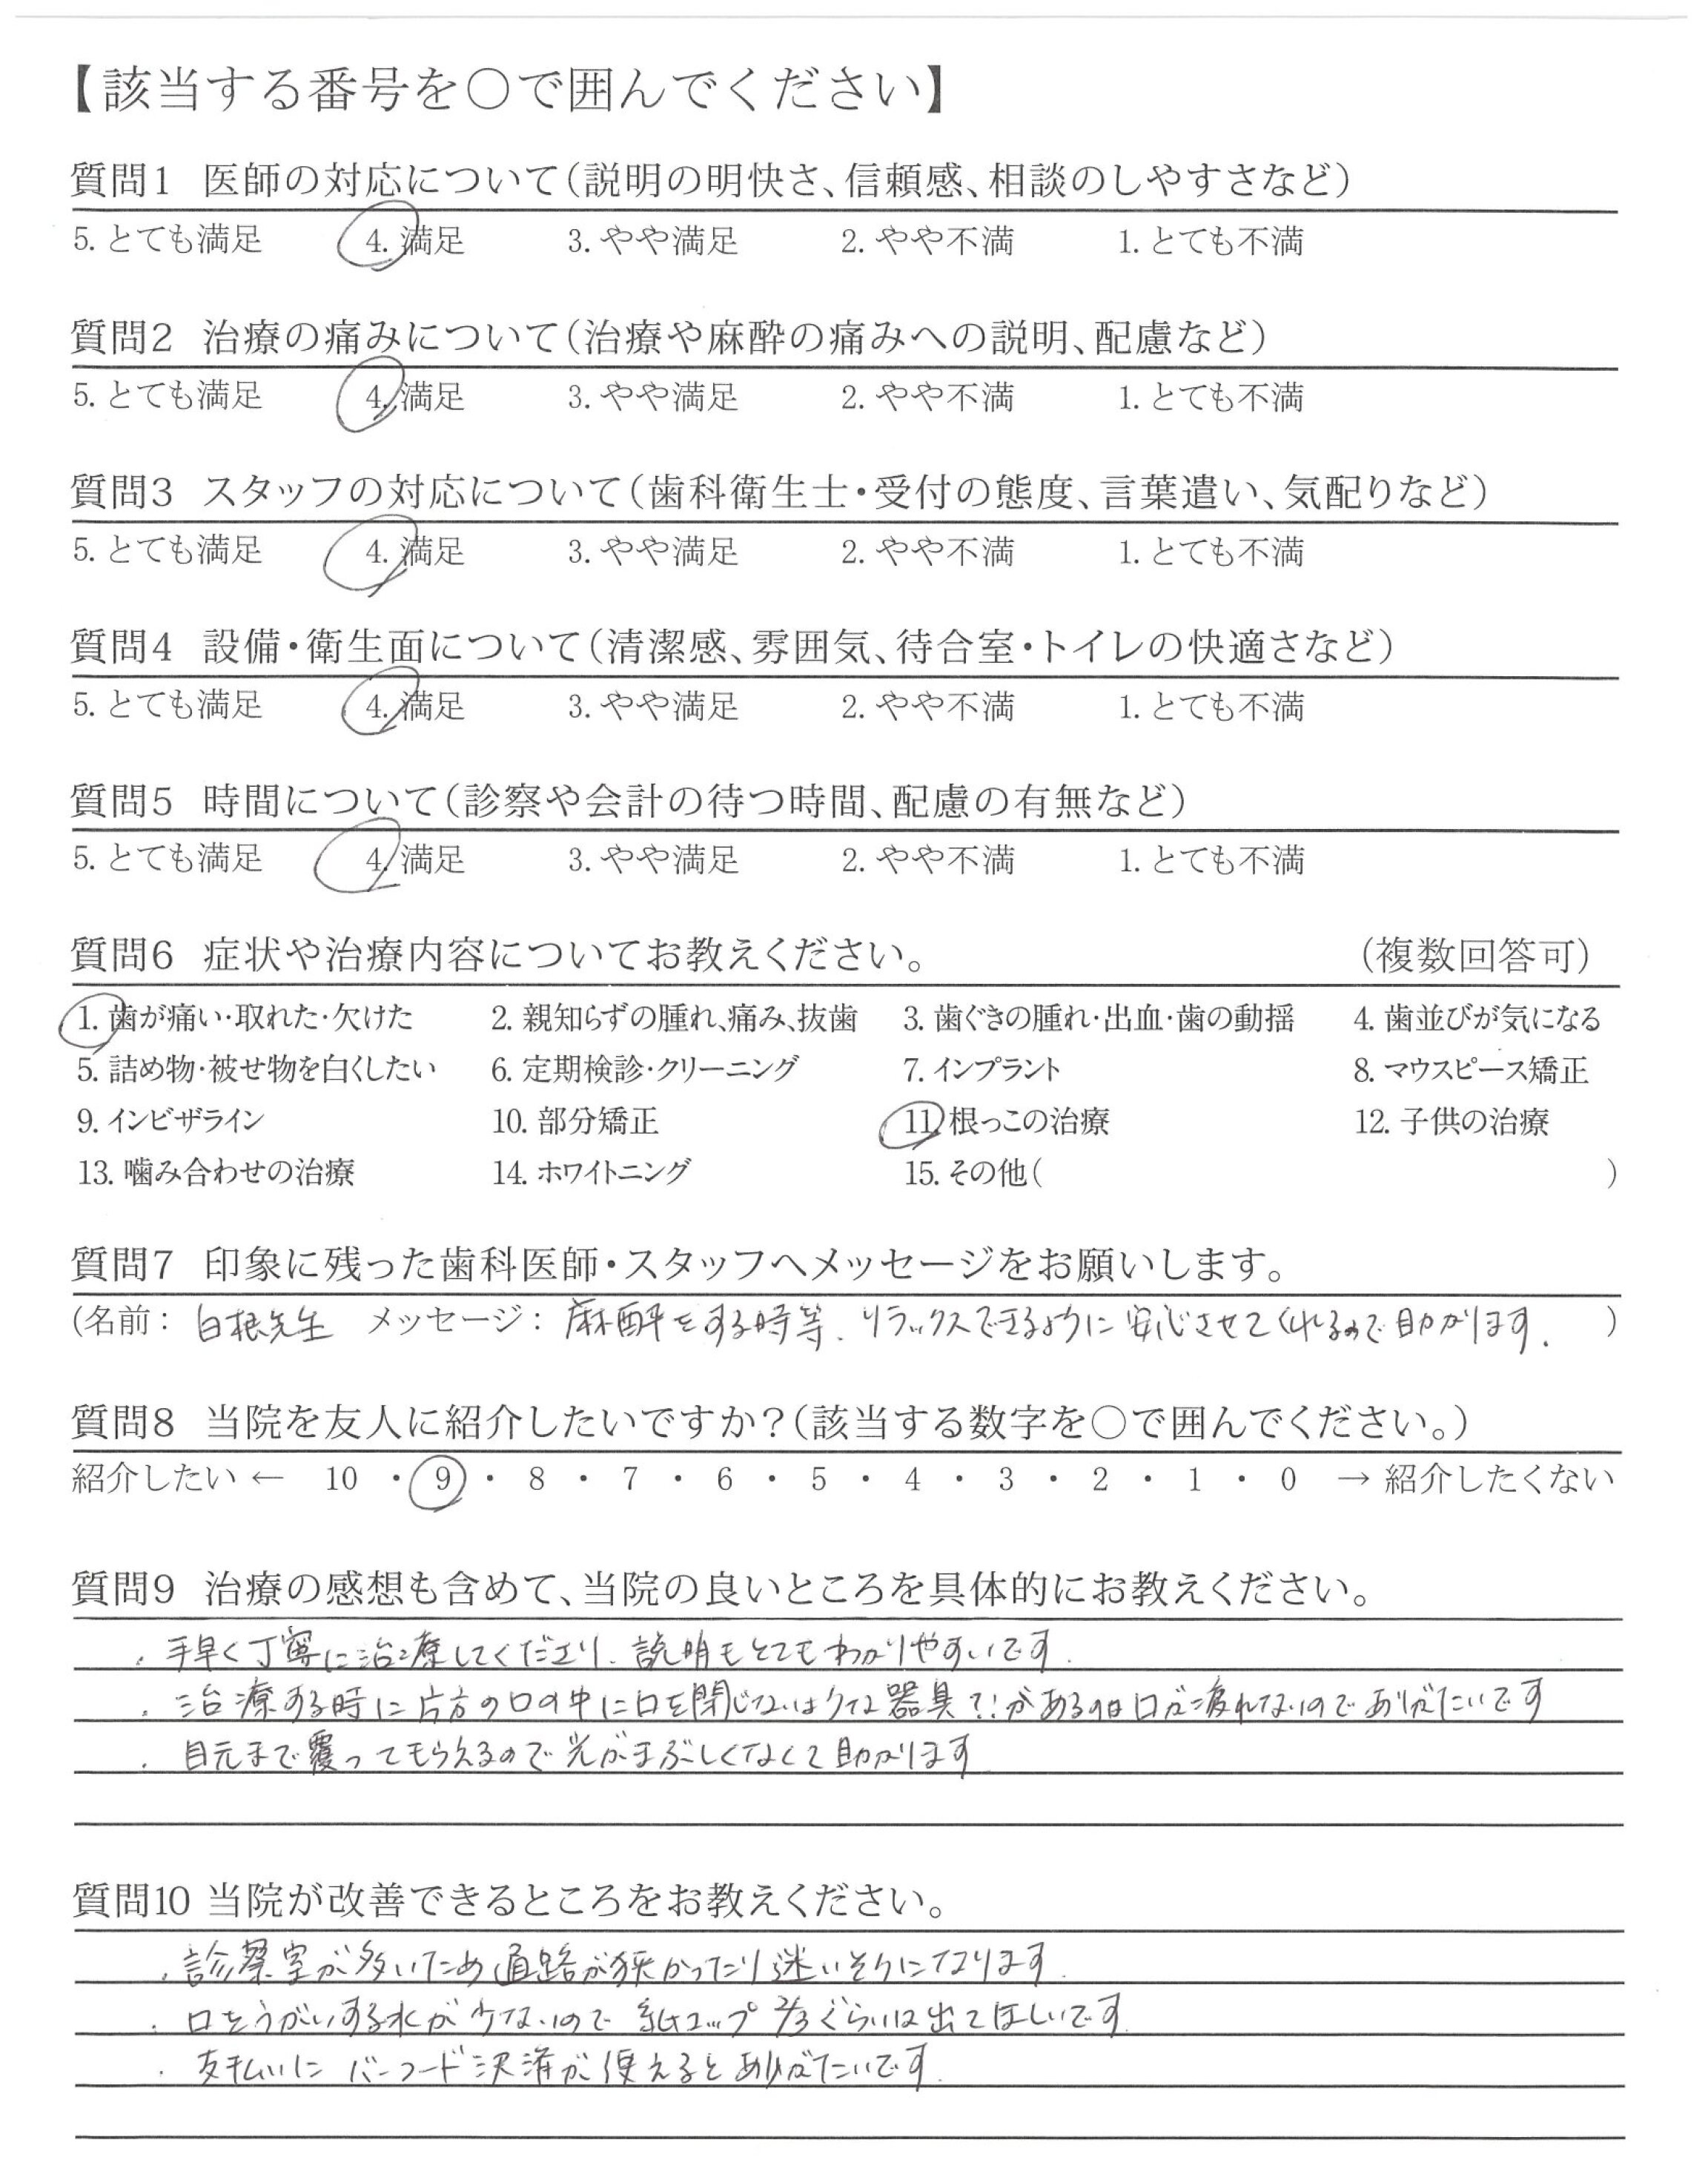 【該当する番号を○で囲んでください】
質問1 医師の対応について（説明の明快さ、信頼感、相談のしやすさなど）
5. とても満足 4. 満足 3. やや満足 2. やや不満 1. とても不満
質問2 治療の痛みについて（治療や麻酔の痛みへの説明、配慮など）
5. とても満足 4. 満足 3. やや満足 2. やや不満 1. とても不満
質問3 スタッフの対応について（歯科衛生士・受付の態度、言葉遣い、気配りなど）
5. とても満足 4. 満足 3. やや満足 2. やや不満 1. とても不満
質問4 設備・衛生面について（清潔感、雰囲気、待合室・トイレの快適さなど）
5. とても満足 4. 満足 3. やや満足 2. やや不満 1. とても不満
質問5 時間について（診察や会計の待つ時間、配慮の有無など）
5. とても満足 4. 満足 3. やや満足 2. やや不満 1. とても不満
質問6 症状や治療内容についてお教えください。 （複数回答可）
1. 歯が痛い・取れた・欠けた 2. 親知らずの腫れ、痛み、抜歯 3. 歯ぐきの腫れ・出血・歯の動揺 4. 歯並びが気になる
5. 詰め物・被せ物を白くしたい 6. 定期検診・クリーニング 7. インプラント 8. マウスピース矯正
9. インビザライン 10. 部分矯正 11. 根っこの治療 12. 子供の治療
13. 噛み合わせの治療 14. ホワイトニング 15. その他（ ）
質問7 印象に残った歯科医師・スタッフへメッセージをお願いします。
（名前： 白根先生 メッセージ： 麻酔をする時等、リラックスできるように安心させてくれるので助かります． ）
質問8 当院を友人に紹介したいですか？（該当する数字を○で囲んでください。）
紹介したい ← 10 ・ 9 ・ 8 ・ 7 ・ 6 ・ 5 ・ 4 ・ 3 ・ 2 ・ 1 ・ 0 → 紹介したくない
質問9 治療の感想も含めて、当院の良いところを具体的にお教えください。
・手早く丁寧に治療してくださり、説明もとてもわかりやすいです．
・治療する時に片方の口の中に口を閉じないような器具？！があるのは口が疲れないのでありがたいです
・目元まで覆ってもらえるので光がまぶしくなくて助かります
質問10 当院が改善できるところをお教えください。
・診察室が多いため通路が狭かったり迷いそうになります．
・口をうがいする水が少ないので紙コップ2/3ぐらいは出てほしいです．
・支払いにバーコード決済が使えるとありがたいです．